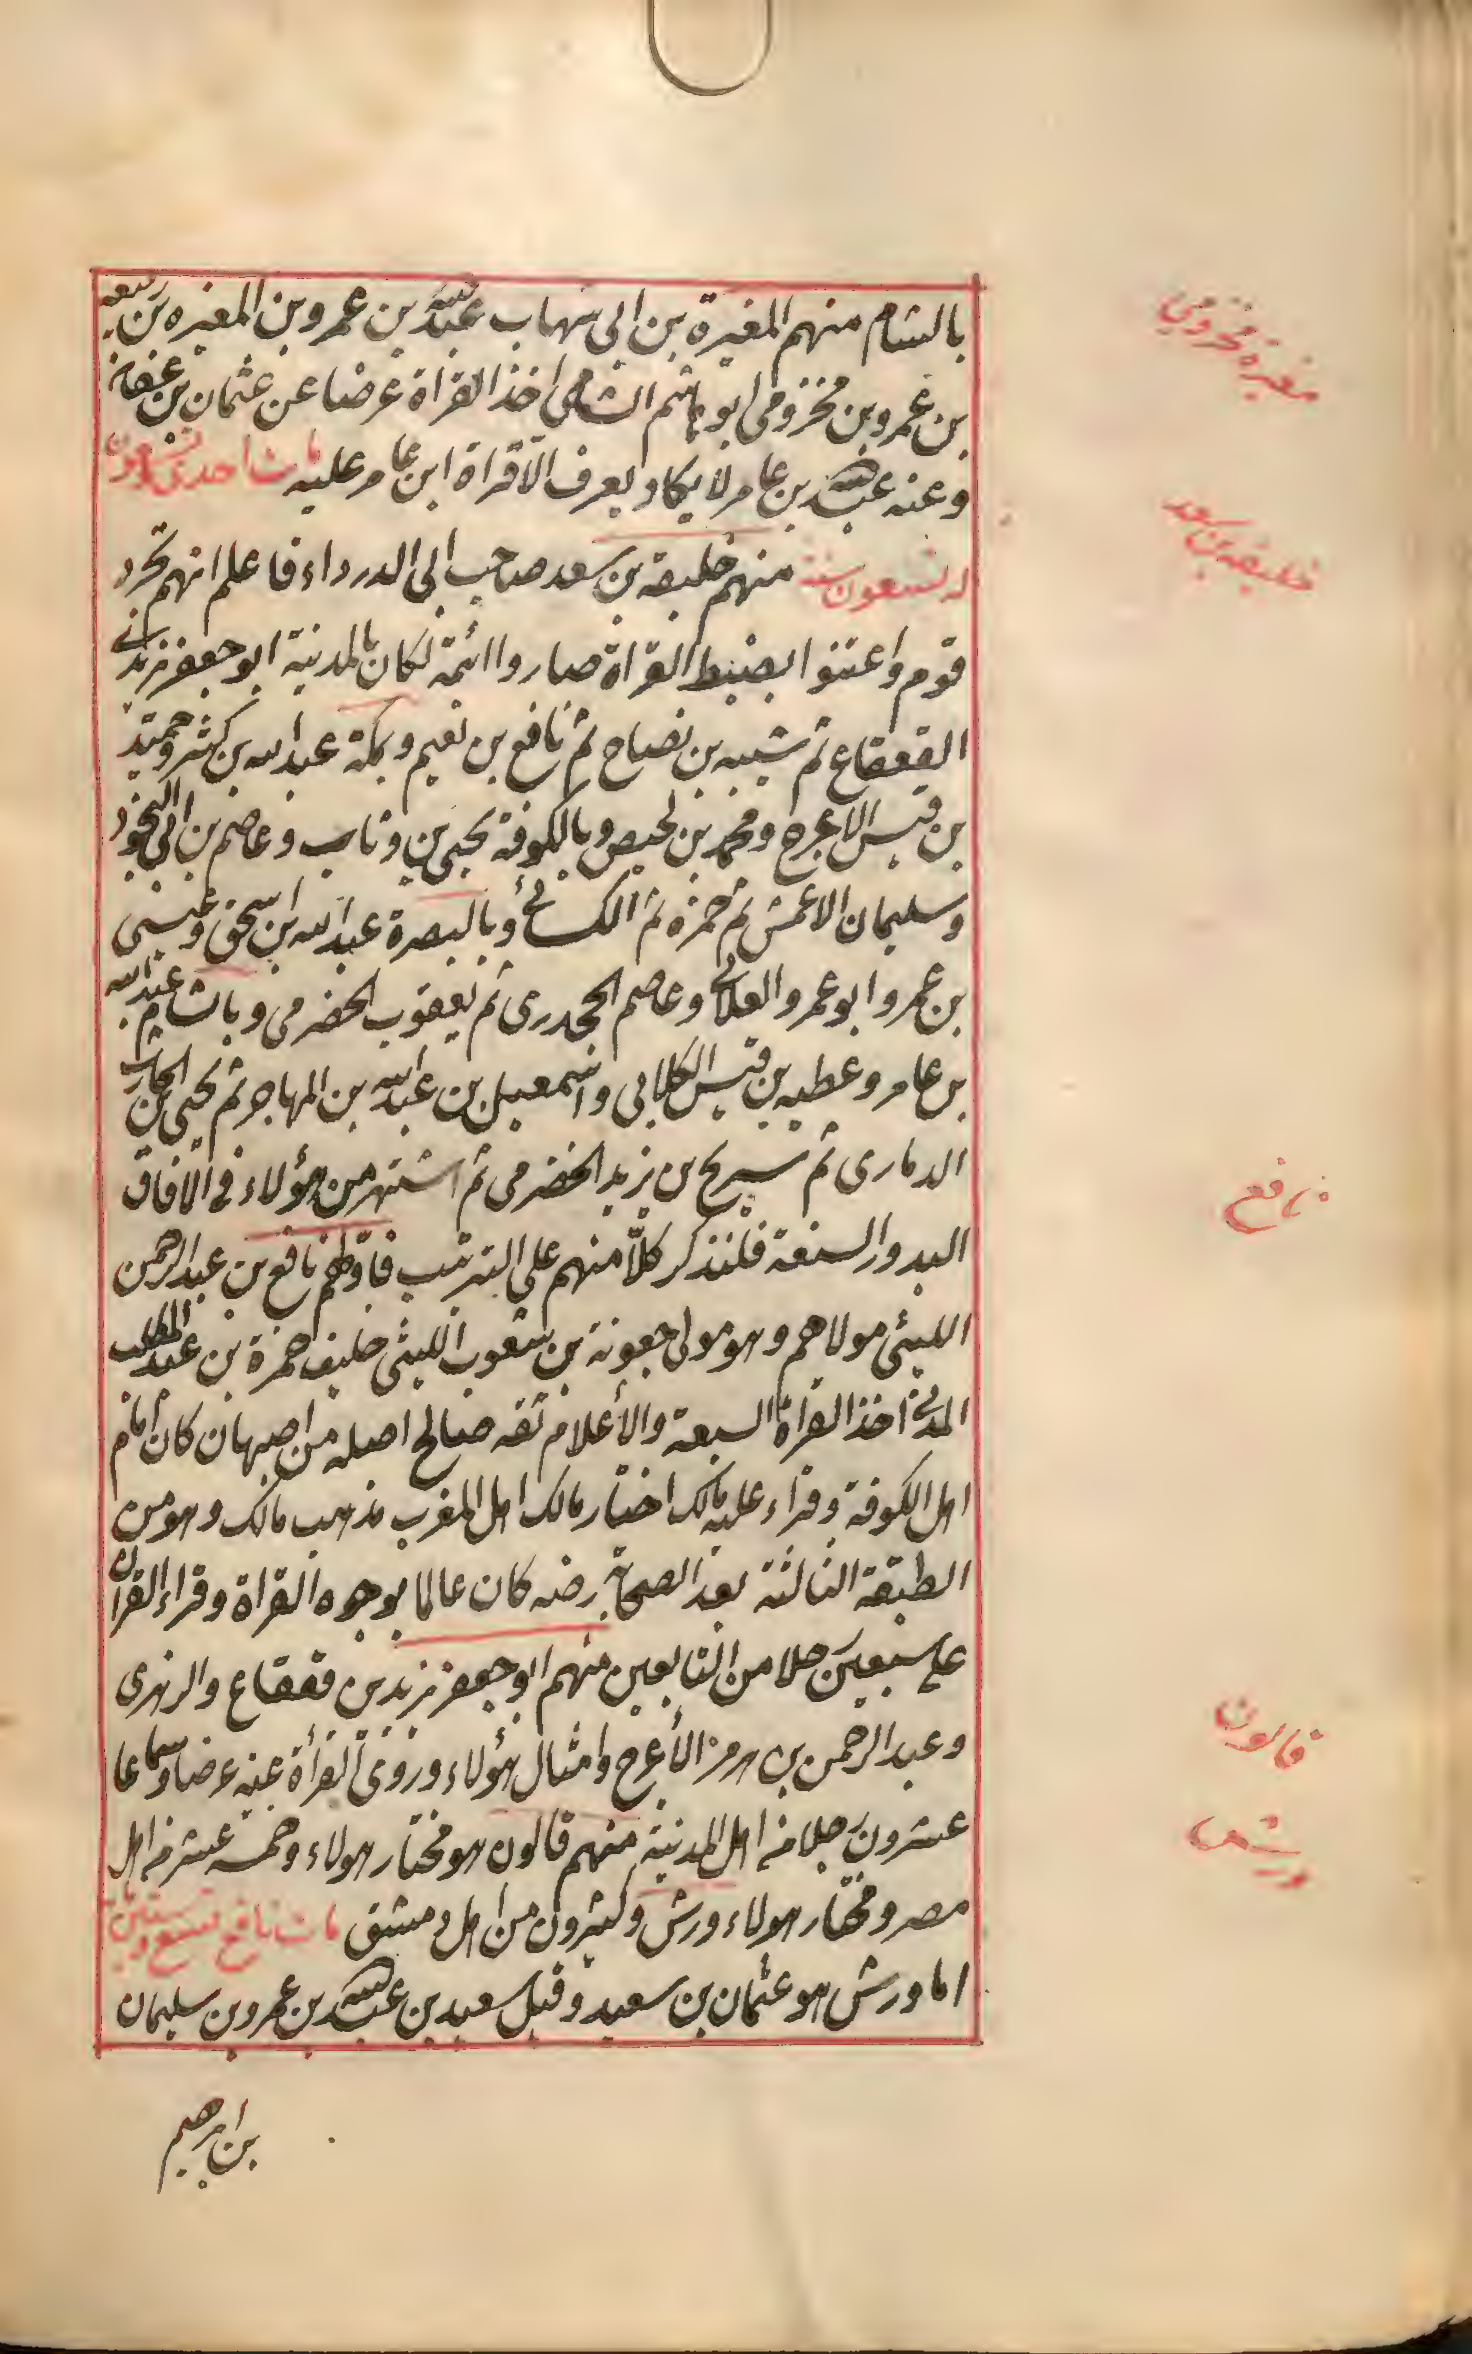 بالشام منهم المغيرة بن ابى شهاب عبد الله بن عمرو بن المغيره بن ربيعه
بن عمرو بن مخزومى ابو هاشم الشامى اخذ القرأة عرضا عن عثمان بن عفان
وعنه عبد الله بن عامر لا يكاد يعرف الا قراة ابن عامر عليه مات احدى
وتسعون سنة منهم خليفه بن سعد صاحب ابى الدرداء فاعلم انهم تجرد
قوم واعتنوا بضبط القراة صاروا ائمة لكان بالمدنية ابو جعفر يزيد بن
القعقاع ثم شيبه بن نصاح ثم نافع بن نعيم وبمكة عبد الله بن كثير وحميد
بن قيس الاعرج ومحمد بن محيص وبالكوفة يحيى بن وثاب وعاصم بن ابى النجود
وسليمان الاعمش ثم حمزه ثم الكسائى وبالبصرة عبد الله ابن اسحق وعيسى
بن عمرو ابو عمرو العلائى وعاصم الجحدرى ثم يعقوب الحضرمى وبالشام عبد الله
بن عامر وعطيه بن قيس الكلابى واسمعيل بن عبد الله بن المهاجر ثم يحيى بن الحارث
الدمارى ثم سريح بن يزيد الحضرمى ثم اشتهر من هؤلاء فى الافاق
البدور السبعة فلنذكر كلا منهم على الترتيب فاولهم نافع بن عبد الرحمن
الليثى مولاهم وهو مولى جعونة بن شعوب الليثى حليف حمزة بن عبد المطلب
المدنى اخذ القرأة السبعة والأعلام ثقه صالح اصله من اصبهان كان امام
اهل الكوفة وقراء عليه مالك اختار مالك اهل المغرب مذهب مالك وهو من
الطبقة الثالثة بعد الصحابة رضه كان عالما بوجوه القراة وقراء القران
على سبعين رجلا من التابعين منهم ابو جعفر يزيد بن قعقاع والزهرى
وعبد الرحمن بن هرمز الأعرج وامثال هؤلاء وروى القرأة عنه عرضا وسماعا
عشرون رجلا من اهل المدنية منهم قالون هو مختار هولاء وخمسه عشر من اهل
مصر ومختار هولاء ورش وكثيرون من اهل دمشق مات نافع تسع وستين
اما ورش هو عثمان بن سعيد وقيل سعيد بن عبد الله بن عمرو بن سليمان
بن ابرهيم
مغيرة مخزومى
خليفه بن سعد
نافع
قالون
ورش